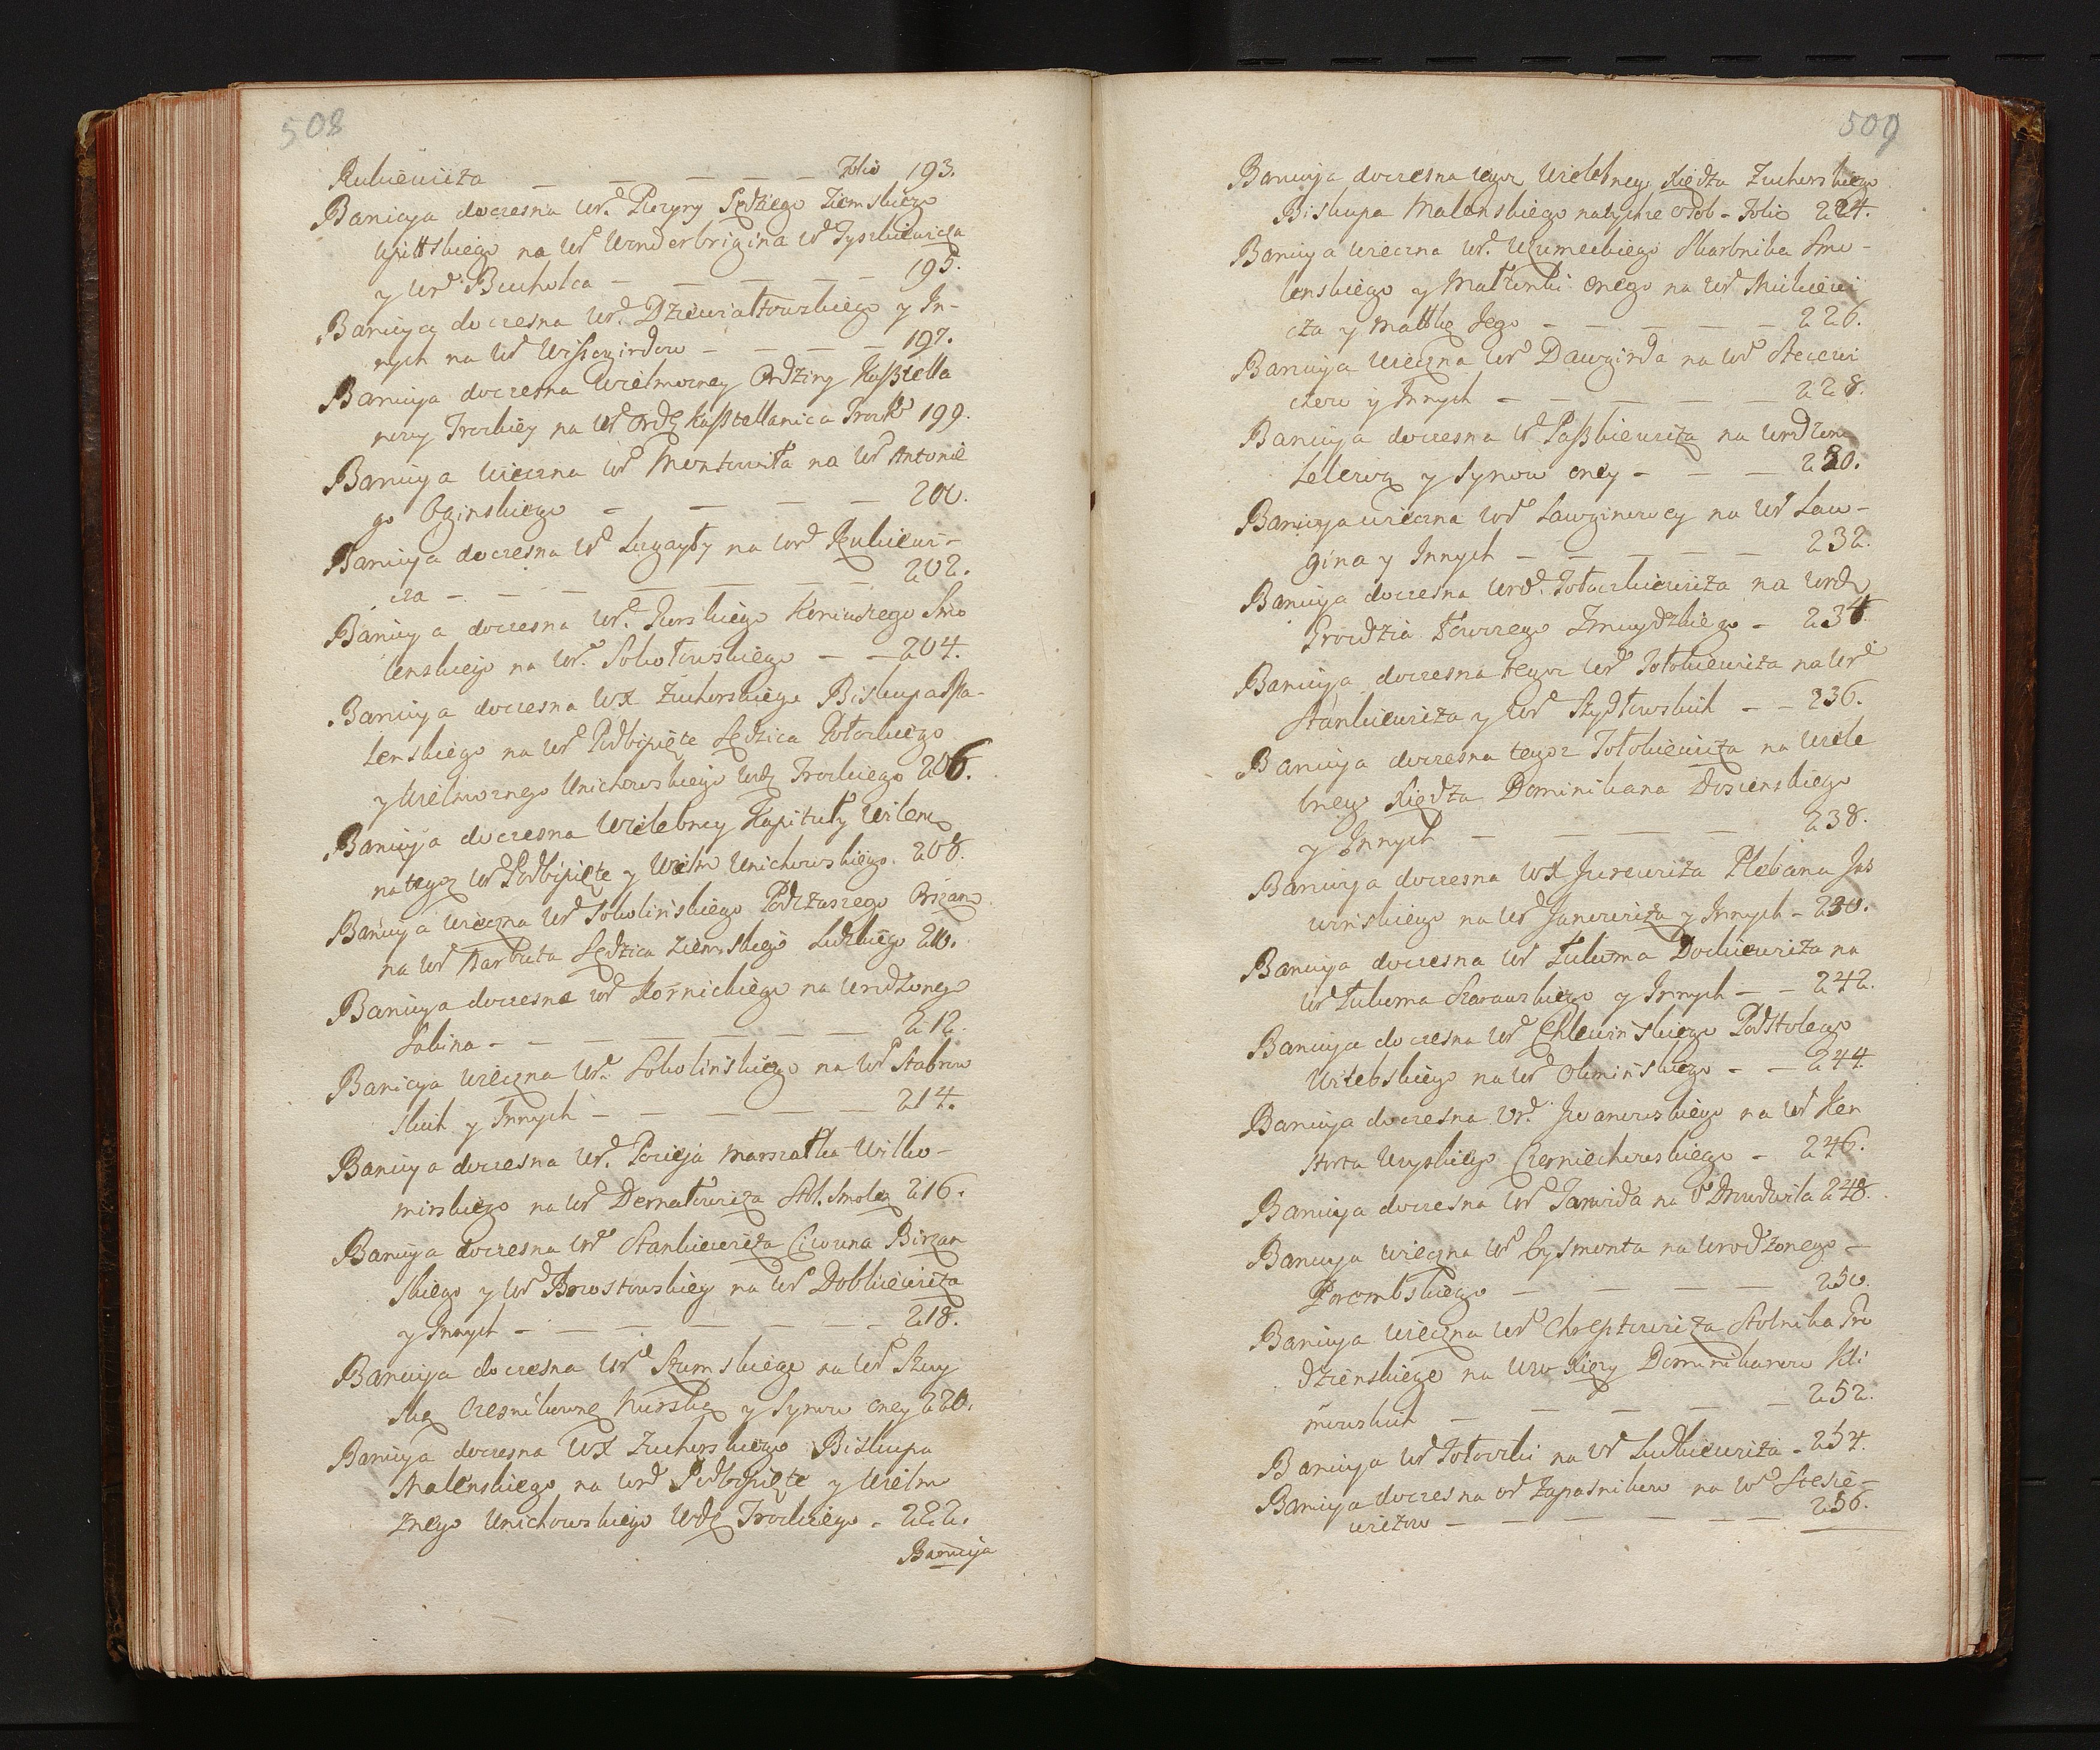 508
Rukiewicza — — — — — Folio 193.
Banicya doczesna Ur. Pieryry Sędziego Ziemskiego
Upittskiego na Ur Wnderbrigina Ur Tyszkiewicza
y Urd Bucholca — — — — — 195.
Banicya doczesna Ur. Dziewiałtowskiego y In-
nych na Ur Wiszogirdow — — — — 197.
Banicya doczesna Wielmozney Ordziny Kasztella
nowy Trockiey na Ur Ordę Kasztellanica Trock 199.
Banicya wieczna Ur Montowta na Ur Antonie
go Oginskiego — — — — 200.
Banicya doczesna Ur na Urd Rukiewi-
cza — — — — — — 202.
Banicya doczesna Ur. Gorskiego Koniuszego Smo
lenskiego na Ur. Sokołowskiego — — 204.
Banicya doczesna WX Zuchorskiego Biskupa Ma-
lenskiego na Ur Podbipięte Sędzica Połockiego
y Wielmoznego Unichowskiego Wdę Trockiego 206.
Banicya doczesna Wielebney Kapituły Wilens
na tegoz Ur Podbipięte y Wielm Unichowskiego. 208.
Banicya wieczna Ur Sokolinskiego Podczaszego Orszans
na Ur Narbuta Sędzica Ziemskiego Lidzkiego 210.
Banicya doczesna Ur Kornickiego na Urodzonego
Sabina — — — — — — 212.
Banicya wieczna Ur. Sokolinskiego na Ur Stabrow
skich y Innych — — — — — 214.
Banicya doczesna Ur. Pocieja Marszałka Wilko-
mirskiego na Ur Dernałowicza Stol. Smolen 216.
Banicya doczesna Ur Stankiewicza Ciwuna Birzan
skiego y Ur Brzostowskiey na Ur Dobkiewicza
y Innych — — — — — — 218.
Banicya doczesna Ur Szumskiego na Ur Szuy
ską Czesnikowną Nurską y Synow oney 220.
Banicya doczesna WX Zuchorskiego Biskupa
Malenskiego na Urd Podbipięte y Wielmo
znego Unichowskiego Wdę Trockiego — 222.
Banicya
509
Banicya doczesna tegoz Wielebnego Xiędza Zuchorskiego
Biskupa Malenskiego na tychze Osob — Folio 224.
Banicya wieczna Ur. Uzumeckiego Skarbnika Smo-
lenskiego y Małzonki onego na Ur Mickiewi
cza y Małtkę Jego — — — — — 226.
Banicya wieczna Ur Dawgirda na Ur Steckewi
czow y Innych — — — — 228.
Banicya doczesna Ur Paszkiewicza na Urodzoną
Lelewą y Synow oney — — — 230.
Banicya wieczna Urd Lawginowey na Ur Law-
gina y Innych — — — — — 232.
Banicya doczesna Urd. Tołoczkiewicza na Urd
Grudzia Łowczego Zmuydzkiego — 234.
Banicya doczesna tegoz Ur Tołokiewicza na Urd
Stankiewicza y Ur Szydłowskich — — 236.
Banicya doczesna tegoz Tołokiewicza na Wiele
bnego Xiędza Dominikana Dosienskiego
y Innych — — — — — 238.
Banicya doczesna WX Jurewicza Plebana Jas
winskiego na Ur Janowicza y Innych — 240.
Banicya doczesna Ur Tukuma Dockiewicza na
Ur Tukuma Szarawskiego y Innych — — 242.
Banicya doczesna Ur Chlewinskiego Podstolego
Witebskiego na Ur Okminskiego — — 244.
Banicya doczesna Ur. Jwanowskiego na Ur Ken
storta Uzyskiego Czerniechowskiego — 246.
Banicya doczesna Ur Tarwida na Ur Drowdwila 248.
Banicya wieczna Ur Eysmonta na Urodzonego —
Porembskiego — — — — 250.
Banicya wieczna Ur Chreptowicza Stolnika Gro
dzienskiego na Ww Xięzy Dominikanow Kli
mowskich — — — — — 252.
Banicya Ur Tołoczki na Ur Ludkiewicza — 254.
Banicya doczesna Ur Zapasnikow na Ur Stesie-
wiczow — — — — — — 256.